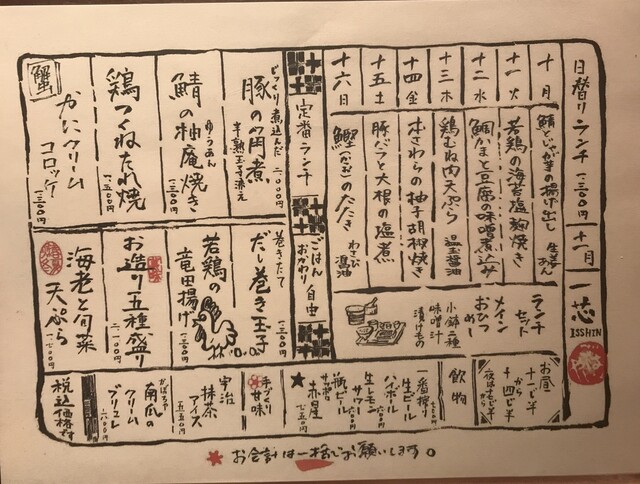 日替りランチ 一三〇〇円 十一月
一芯
ISSHIN
十 月 鯖とじゃが芋の揚げ出し 生姜あん
十一 火 若鶏の海苔塩麹焼き
十二 水 鯛かまと豆腐の味噌煮込み
十三 木 鶏むね肉天ぷら 温玉醤油
十四 金 本さわらの柚子胡椒焼き
十五 土 豚バラ大根の塩煮
十六 日 鰹(かつお)のたたき わさび醤油
ランチセット
メイン
おひつめし
小鉢二種
味噌汁
漬けもの
定番ランチ
ごはんおかわり自由
じっくり煮込んだ
豚の角煮
半熟玉子添え
二〇〇〇円
鯖の柚庵焼き
ゆうあん
一三〇〇円
鶏つくねたれ焼
一五〇〇円
蟹
かにクリームコロッケ
一三〇〇円
巻きたて
だし巻き玉子
一三〇〇円
若鶏の竜田揚げ
一三〇〇円
お造り五種盛り
二一〇〇円
海老と旬菜天ぷら
一七〇〇円
お昼
十一じ半から
十四じ半
夜は十七じ半から
飲物
一番搾り
生ビール
ハイボール
生レモンサワー
六〇〇円
瓶ビール
サッポロ赤星
七五〇円
手づくり甘味
宇治抹茶アイス
五五〇円
かぼちゃ
南瓜のクリームブリュレ
六〇〇円
税込価格です
お会計は一括でお願いします。